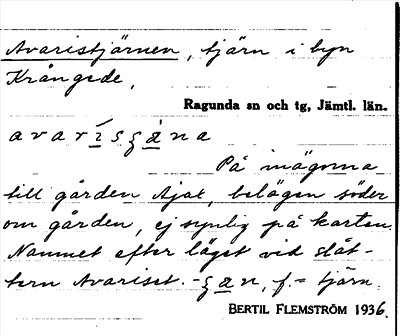 Avaristjärnen, tjärn i byn
Krångede,
Ragunda sn och tg, Jämtl. län.
På mägorna
till gården Ajal, belägen söder
om gården, ej synlig på kartan.
Namnet efter läget vid slåt-
tern Avariset. - f. = tjärn.
BERTIL FLEMSTRÖM 1936.